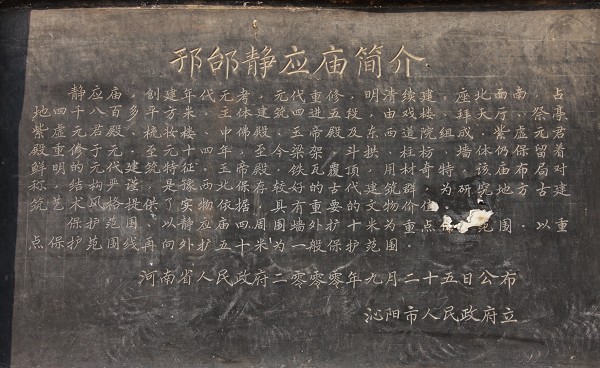 邘邰静应庙简介
静应庙，创建年代无考，元代重修，明清续建，座北面南，占
地四千八百多平方米，主体建筑四进五段，由戏楼、拜天厅、祭亭
紫虚元君殿、梳妆楼、中佛殿、玉帝殿及东西道院组成，紫虚元君
殿重修于元，至元十四年，至今梁架、斗拱、柱枋、墙体仍保留着
鲜明的元代建筑特征，玉帝殿，铁瓦覆顶，用材奇特，该庙布局对
称，结构严谨，是豫西北保存较好的古代建筑群，为研究地方古建
筑艺术风格提供了实物依据，具有重要的文物价值
保护范围、以静应庙四周围墙外扩十米为重点保 范围，以重
点保护范围线再向外扩五十米为一般保护范围．
河南省人民政府二零零零年九月二十五日公布
沁阳市人民政府立